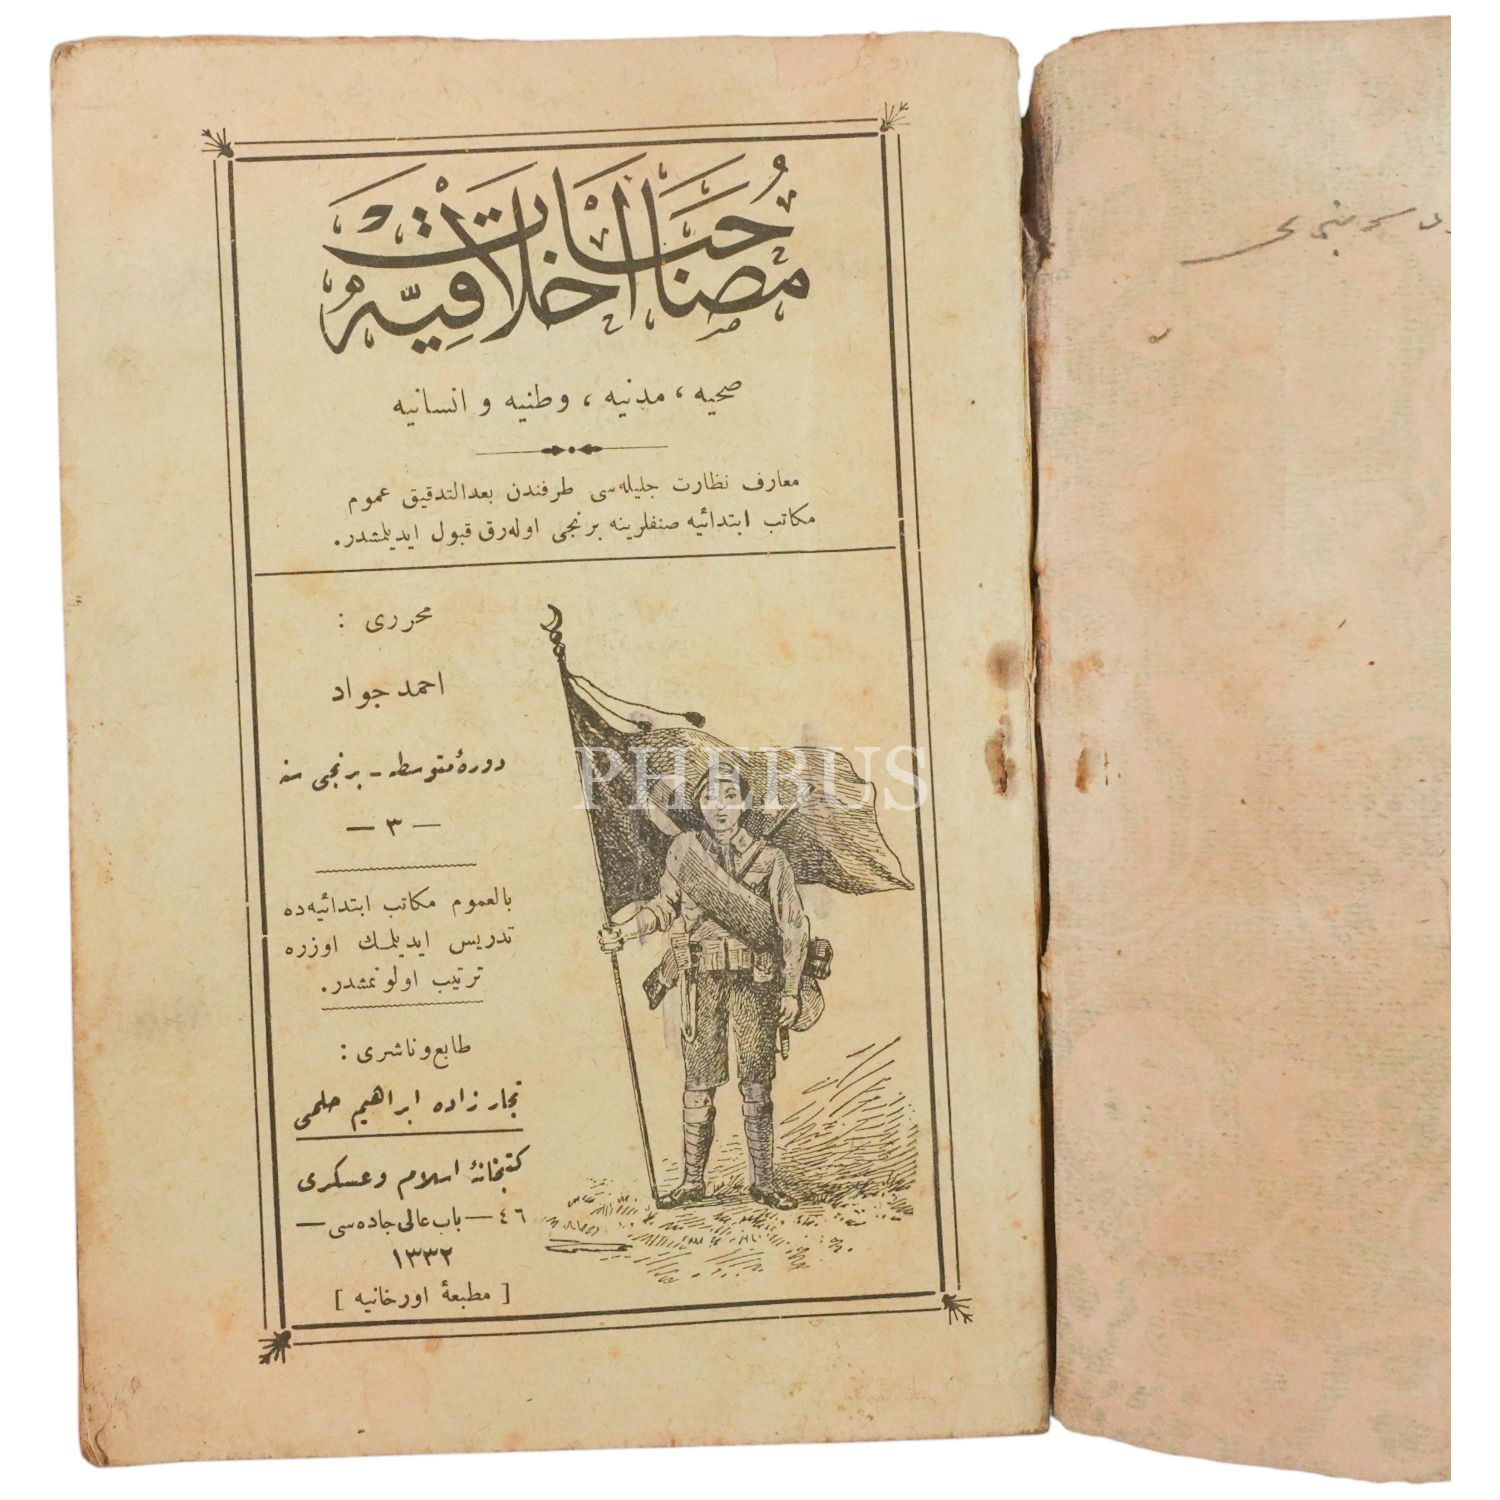 مصاحبات اخلاقيه
صحيه ، مدنيه ، وطنيه و انسانيه
معارف نظارت جليله‌سى طرفندن بعدالتدقيق عموم
مكاتب ابتدائيه صنفلرينه برنجى اوله‌رق قبول ايديلمشدر.
محررى :
احمد جواد
دورهٔ متوسطه - برنجى سنه
— ٣ —
بالعموم مكاتب ابتدائيه‌ده
تدريس ايديلمك اوزره
ترتيب اولونمشدر.
طابع و ناشرى :
نجار زاده ابراهيم حلمى
كتبخانهٔ اسلام و عسكرى
٤٦ — باب عالى جاده‌سى —
١٣٣٢
[ مطبعهٔ اورخانيه ]
PHEBUS